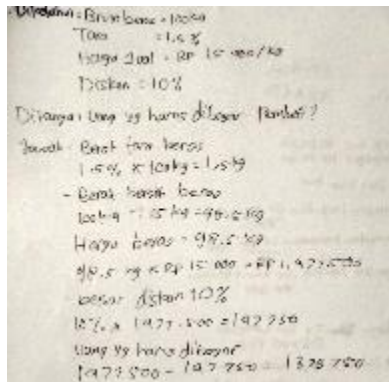 Diketahui : Bruto beras = 100kg
Tara = 1,5%
Harga Jual = RP 15 000/kg
Diskon = 10%
Ditanya : Uang yg harus dibayar Pembeli?
Jawab : Berat tara beras
1.5% x 100kg = 1,5kg
- Berat bersih beras
100kg - 1.5 kg = 98.5 kg
Harga beras = 98.5 kg
98.5 kg x RP 15 000 = RP 1.977.500
besar diskon 10%
10% x 1977.500 = 197750
Uang yg harus dibayar
1977.500 - 197.750 =